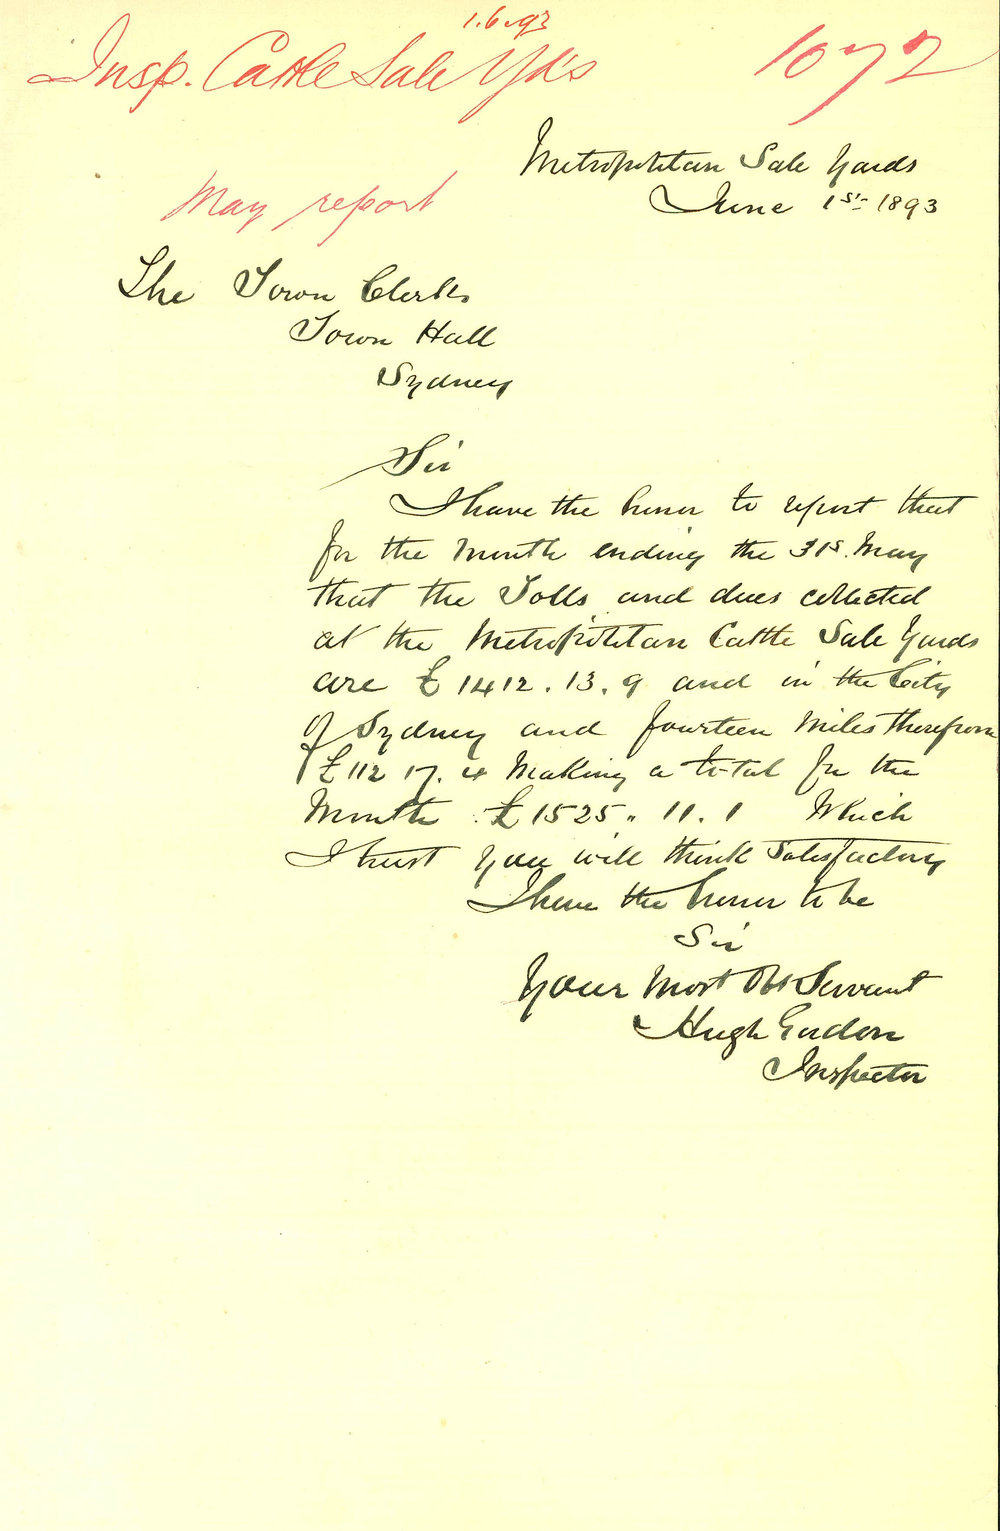 1.6.93
Insp. Cattle Sale Yds
1072
Metropolitan Sale Yards
June 1st 1893
May report
The Town Clerks
Town Hall
Sydney
Sir
I have the honor to report that
for the Month ending the 31s. May
that the Tolls and dues collected
at the Metropolitan Cattle Sale Yards
are £1412.13.9 and in the City
of Sydney and fourteen Miles therefrom
£112 17.4 Making a total for the
Month £1525.11.1 Which
I trust you will think Satisfactory
I have the honor to be
Sir
Your Most Obt Servant
Hugh Gordon
Inspector